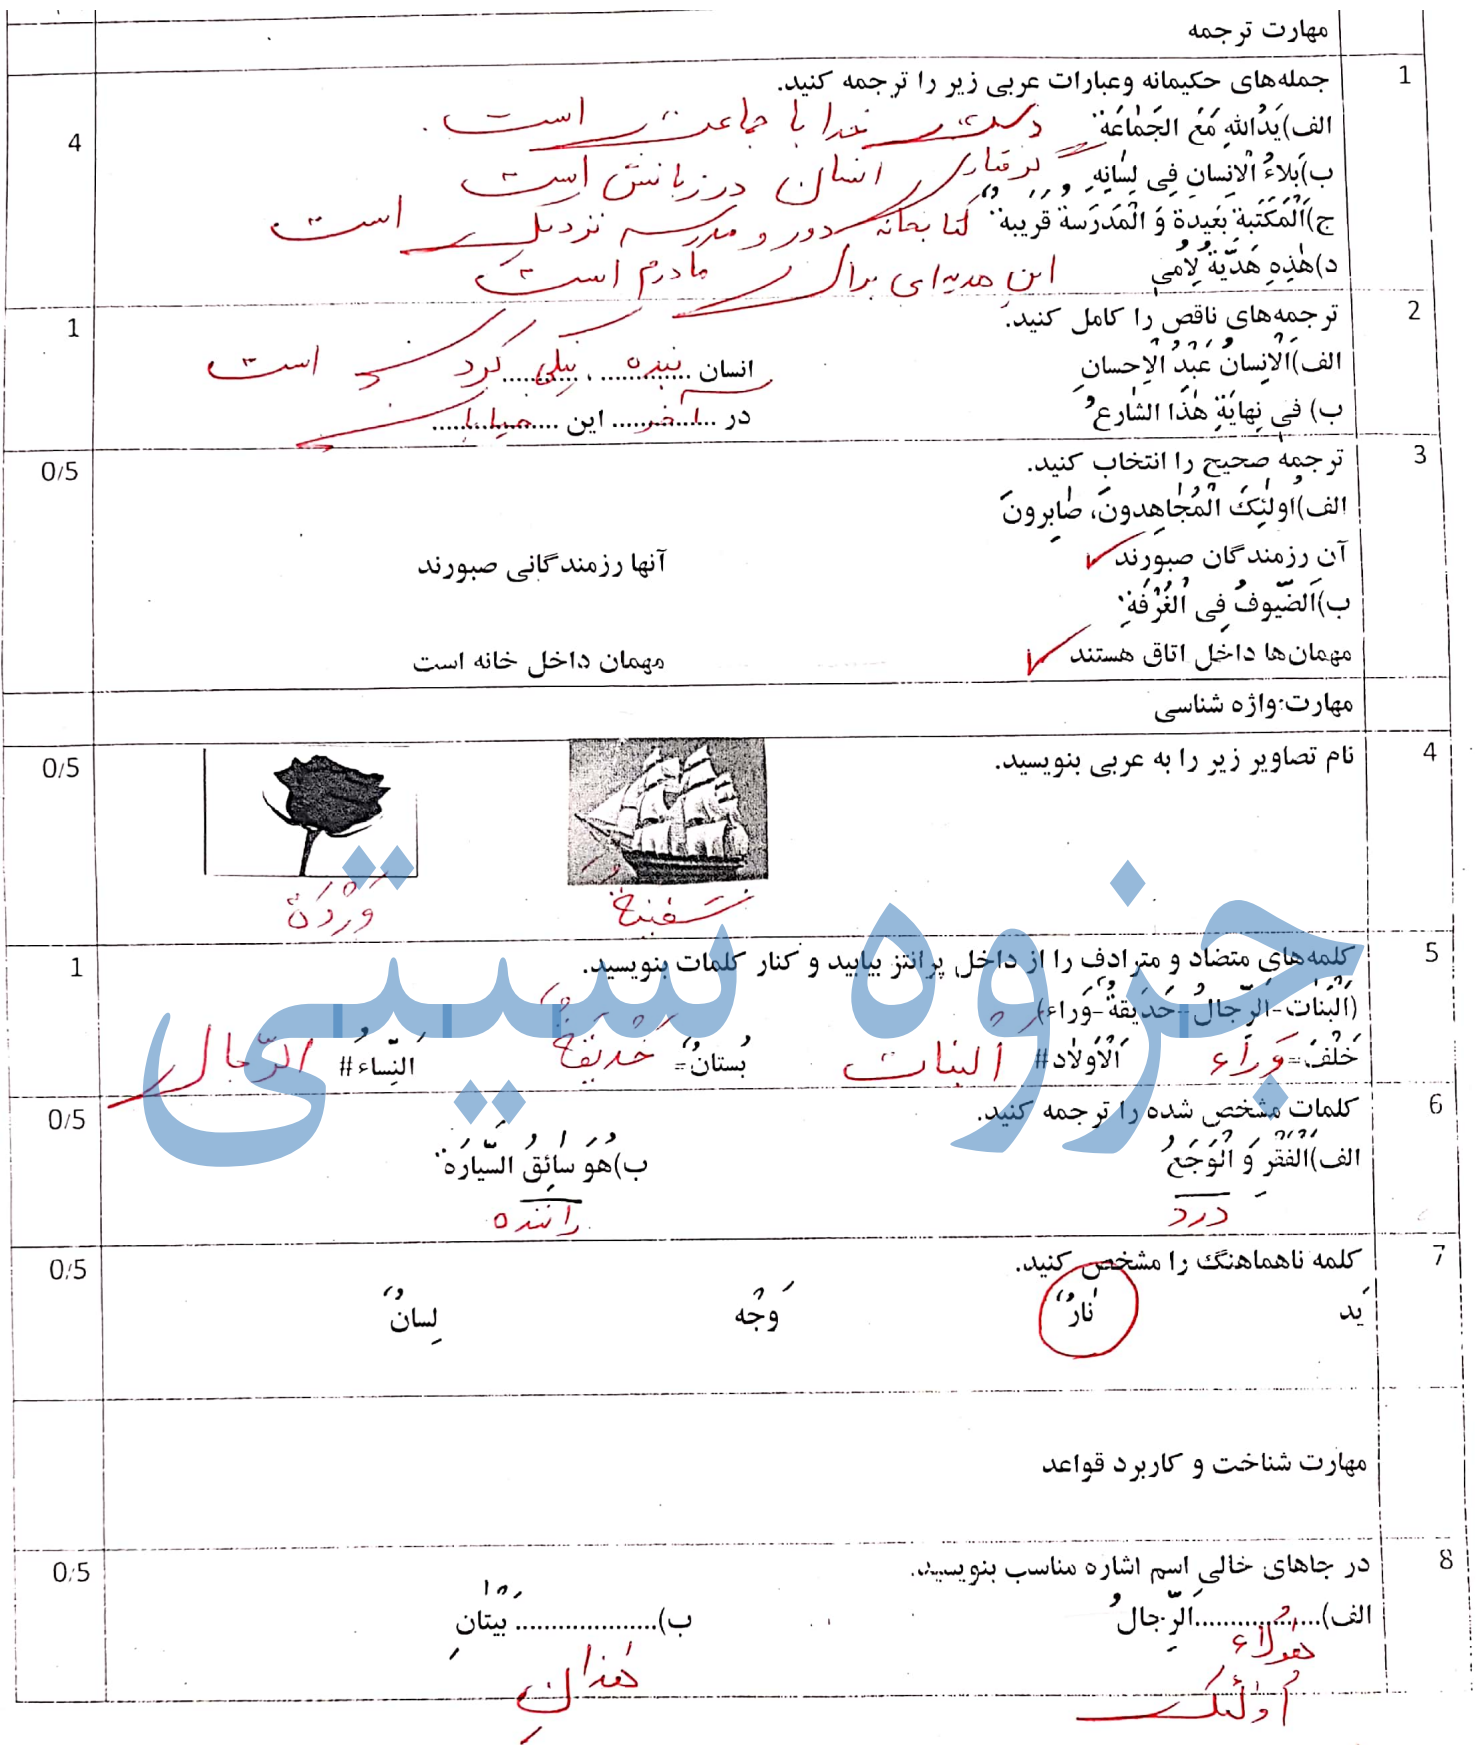 مهارت ترجمه
1 جمله‌های حکیمانه وعبارات عربی زیر را ترجمه کنید.
4 الف)یَدُاللهِ مَعَ الجَمٰاعَة دست خدا با جماعت است.
ب)بَلاءُ الْانِسانِ فِی لِسٰانِهِ گرفتاری انسان در زبانش است
ج)اَلْمَکتَبة بَعیدة وَ الْمَدرَسة قَریبة کتابخانه دور و مدرسه نزدیک است
د)هٰذِهِ هَدّیَةُ لِاُمّی این هدیه‌ای برای مادرم است
2 ترجمه‌های ناقص را کامل کنید. 1
الف)اَلْاِنسانُ عَبْدُ الْاِحسانِ انسان بنده ، نیکی کردن است
ب) فی نِهایَةِ هٰذَا الشّارِع در آخر این خیابان
3 ترجمه صحیح را انتخاب کنید. 0/5
الف)اُولٰئِکَ الْمُجٰاهِدونَ، صٰابِرونَ
آن رزمندگان صبورند ✓ آنها رزمندگانی صبورند
ب)اَلضّیوفُ فِی الْغُرْفَةِ
مهمان‌ها داخل اتاق هستند ✓ مهمان داخل خانه است
مهارت:واژه شناسی
4 نام تصاویر زیر را به عربی بنویسید. 0/5
سَفینَةُ وَرْدَةٌ
5 کلمه‌های متضاد و مترادف را از داخل پرانتز بیابید و کنار کلمات بنویسید. 1
(اَلْبَنٰات-اَلرِّجالُ-حَدیقةُ-وَراء)
خَلْفَ=وَرٰاء اَلْاَوْلاد# اَلبَنات بُستانٌ= حَدیقَةٌ اَلنِّساءُ# الرِّجال
جزوه سیتی
6 کلمات مشخص شده را ترجمه کنید. 0/5
الف)اَلْفَقْر وَ الْوَجَعُ ب)هُوَ سٰائِقُ السَّیارَة
درد راننده
7 کلمه ناهماهنگ را مشخص کنید. 0/5
یَد نٰارٌ وَجْه لِسانٌ
مهارت شناخت و کاربرد قواعد
8 در جاهای خالی اسم اشاره مناسب بنویسید. 0/5
الف)....................اَلرِّجالُ ب)..................... بَیْتانِ
هٰؤُلاء هٰذانِ
اُولٰئک